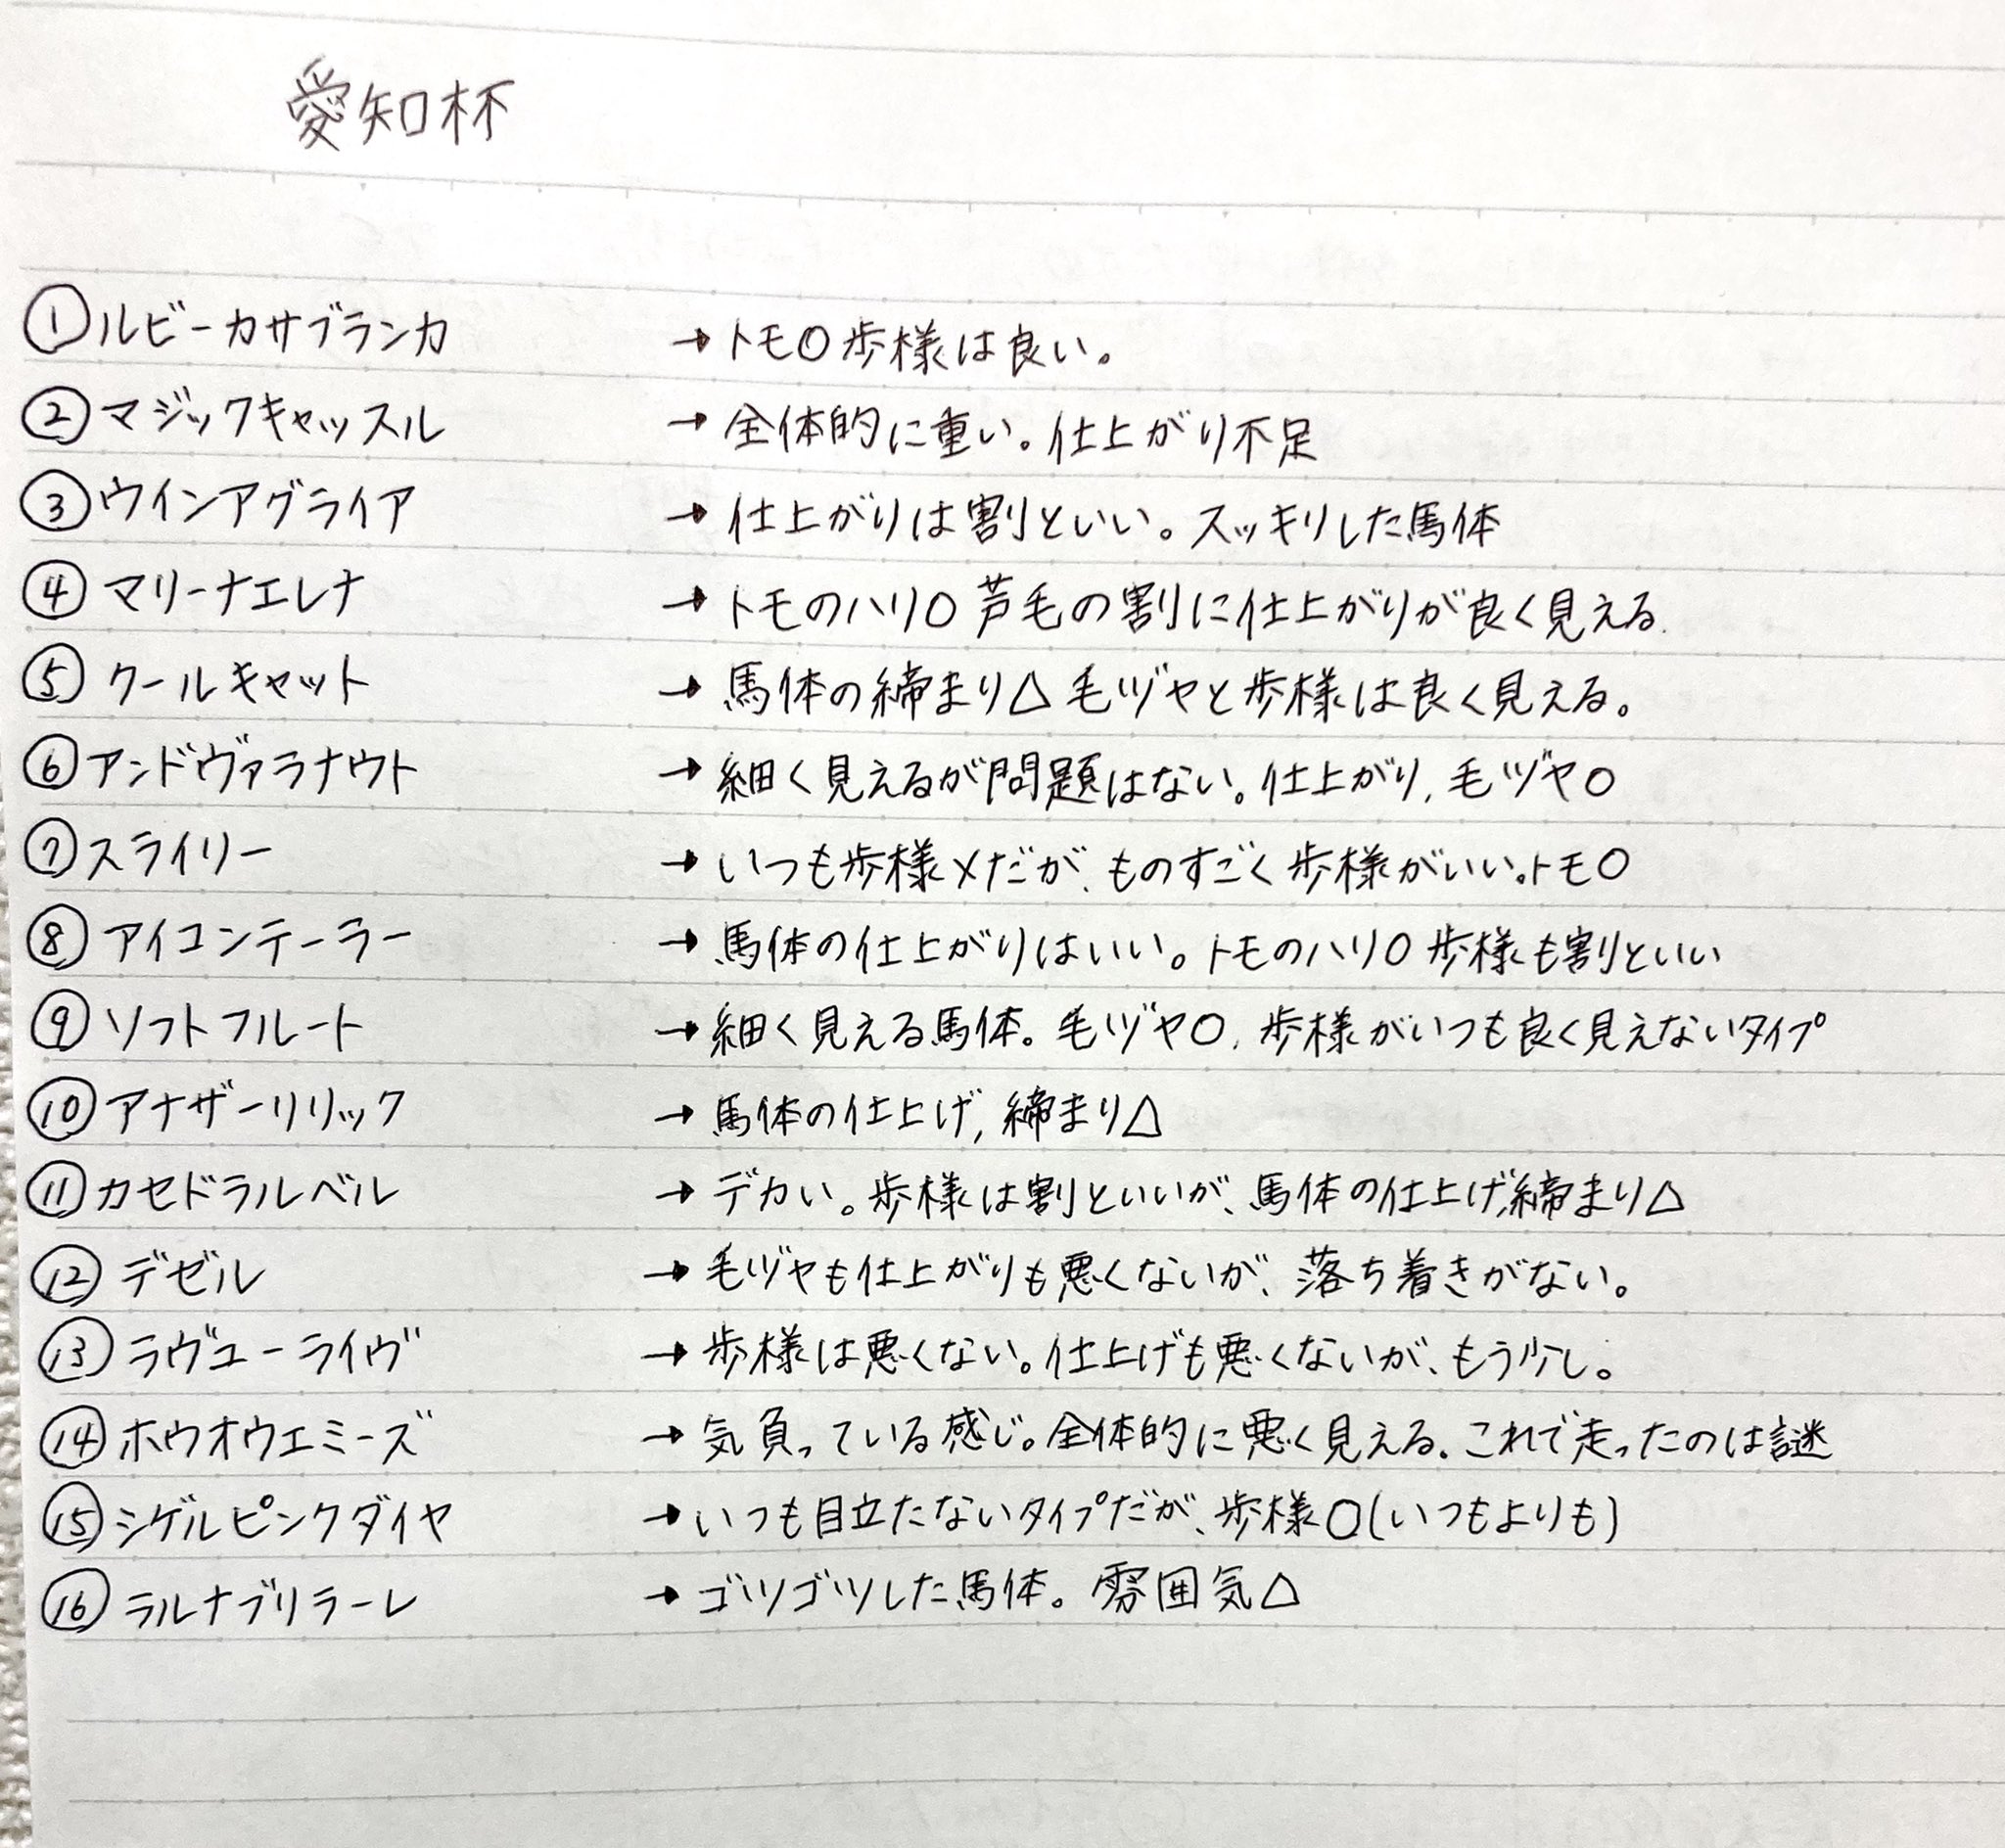 愛知杯
①ルビーカサブランカ →トモ○歩様は良い。
②マジックキャッスル →全体的に重い。仕上がり不足
③ウインアグライア →仕上がりは割といい。スッキリした馬体
④マリーナエレナ →トモのハリ○ 芦毛の割に仕上がりが良く見える.
⑤クールキャット →馬体の締まり△ 毛ヅヤと歩様は良く見える。
⑥アンドヴァラナウト →細く見えるが問題はない。仕上がり, 毛ヅヤ○
⑦スライリー →いつも歩様×だが、ものすごく歩様がいい。トモ○
⑧アイコンテーラー →馬体の仕上がりはいい。トモのハリ○ 歩様も割といい
⑨ソフトフルート →細く見える馬体。毛ヅヤ○, 歩様がいつも良く見えないタイプ
⑩アナザーリリック →馬体の仕上げ, 締まり△
⑪カセドラルベル →デカい。歩様は割といいが、馬体の仕上げ,締まり△
⑫デゼル →毛ヅヤも仕上がりも悪くないが、落ち着きがない。
⑬ラヴユーライヴ →歩様は悪くない。仕上げも悪くないが、もう少し。
⑭ホウオウエミーズ →気負っている感じ。全体的に悪く見える. これで走ったのは謎
⑮シゲルピンクダイヤ →いつも目立たないタイプだが、歩様○(いつもよりも)
⑯ラルナブリラーレ →ゴツゴツした馬体。雰囲気△